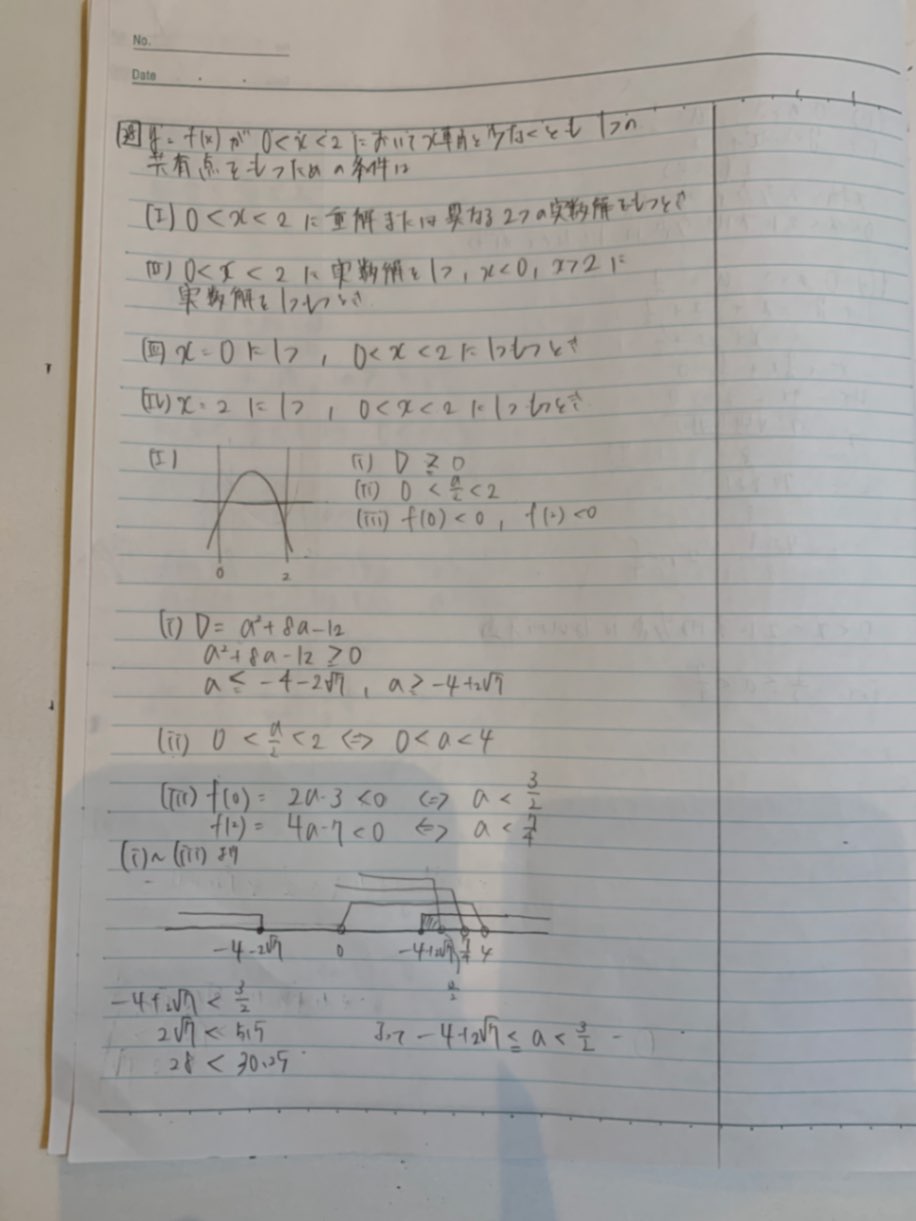 No.
Date
y = f(x) が 0 < x < 2 において x軸と少なくとも1つの
共有点をもつための条件は
(I) 0 < x < 2 に重解または異なる2つの実数解をもつとき
(II) 0 < x < 2 に実数解を1つ, x<0, x>2 に
実数解を1つもつとき
(III) x = 0 に1つ, 0 < x < 2 に1つもつとき
(IV) x = 2 に1つ, 0 < x < 2 に1つもつとき
(I)
(i) D ≧ 0
(ii) 0 < a/2 < 2
(iii) f(0) < 0, f(2) < 0
0 2
(i) D = a²+8a-12
a²+8a-12 ≧ 0
a ≦ -4-2√7, a ≧ -4+2√7
(ii) 0 < a/2 < 2 ⇔ 0 < a < 4
(iii) f(0) = 2a-3 < 0 ⇔ a < 3/2
f(2) = 4a-7 < 0 ⇔ a < 7/4
(i)~(iii) より
-4-2√7 0 -4+2√7 7/4 4
3/2
-4+2√7 < 3/2
2√7 < 5.5 よって -4+2√7 ≦ a < 3/2
28 < 30.25